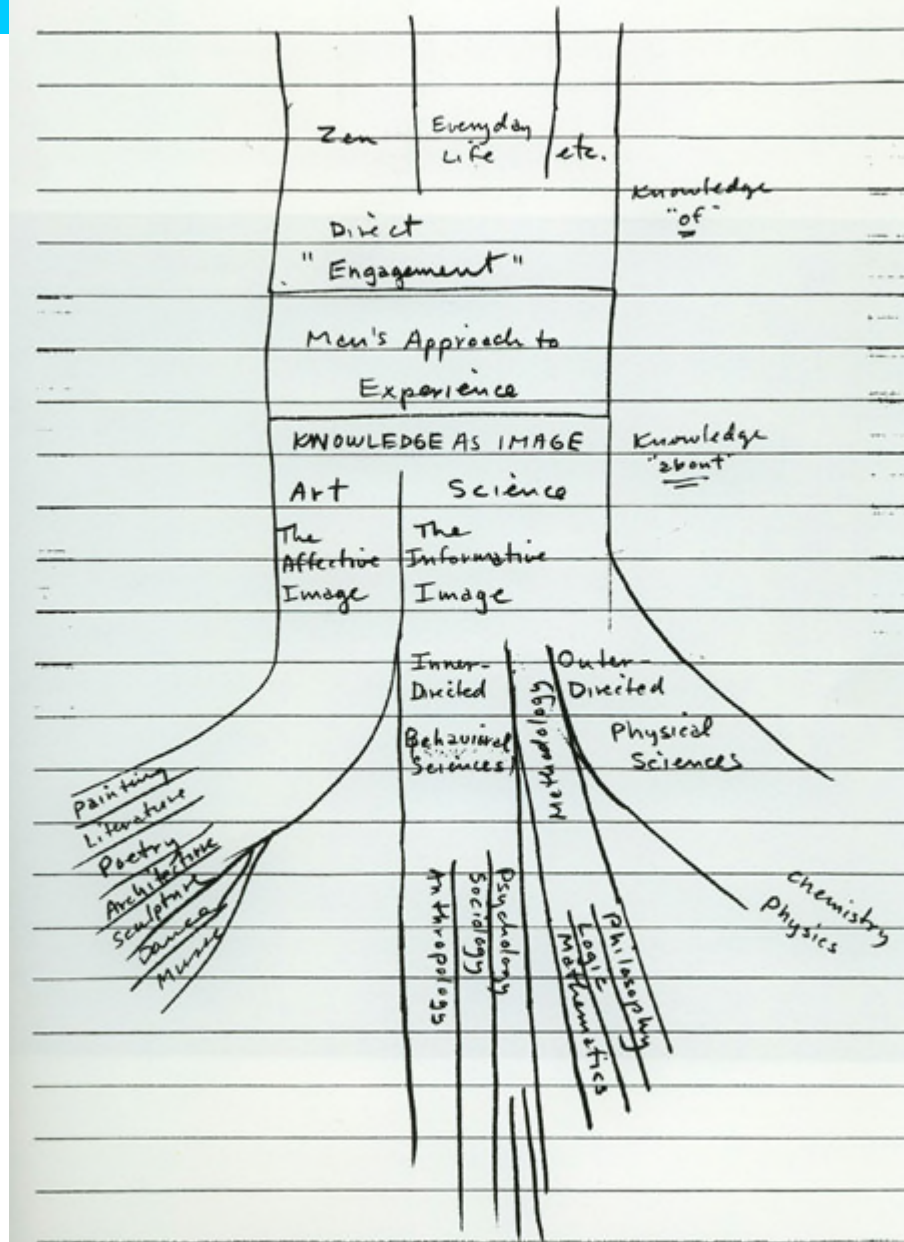 Zen
Everyday
Life
etc.
Knowledge
"of"
Direct
"Engagement"
Man's Approach to
Experience
KNOWLEDGE AS IMAGE
Knowledge
"about"
Art
Science
The
Affective
Image
The
Informative
Image
Inner-
Directed
Behavioral
Sciences
Methodology
Outer-
Directed
Physical
Sciences
Painting
Literature
Poetry
Architecture
Sculpture
Dance
Music
Anthropology
Sociology
Psychology
Philosophy
Logic
Mathematics
Chemistry
Physics